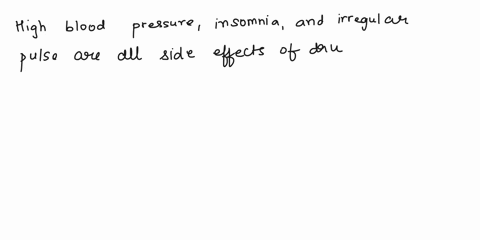 High blood pressure, insomnia, and irregular
pulse are all side effects of dru